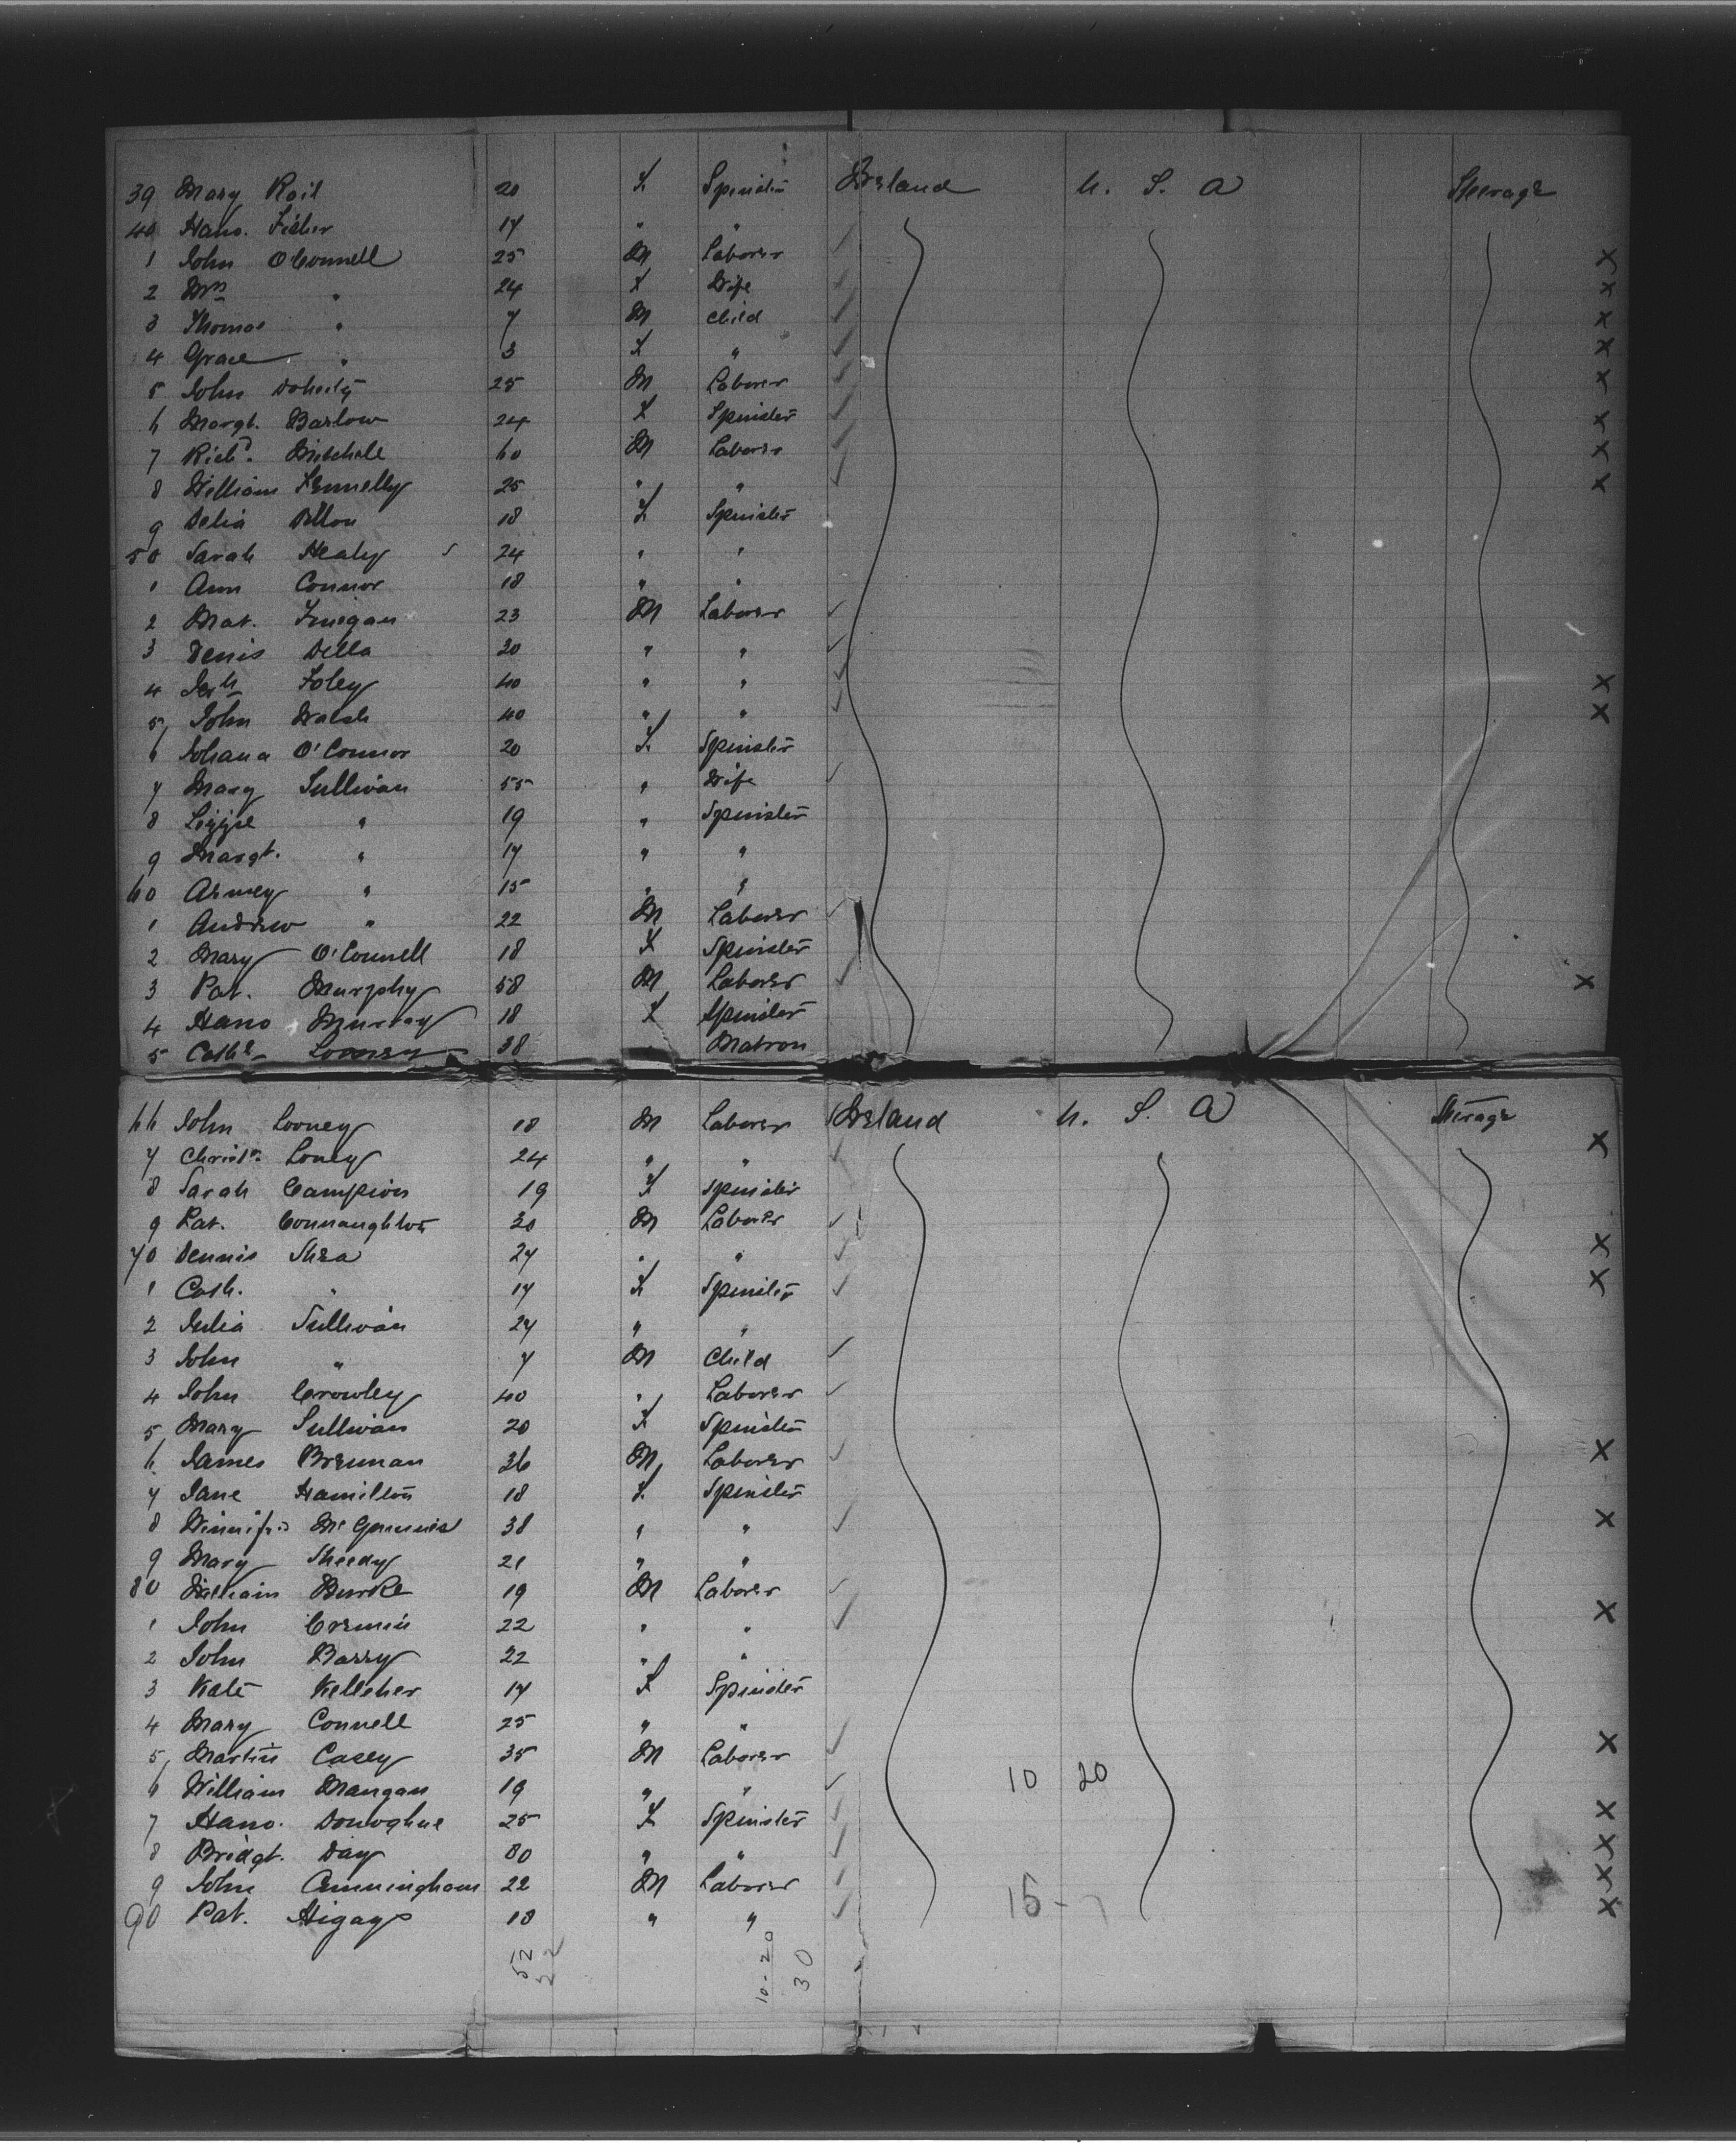 39 Mary Roil 20 F. Spinster Ireland U. S. A Steerage
40 Hano. Fisher 17 " "
1 John O'Connell 25 M Laborer ✓ X
2 Mrs " 24 F Wife ✓ X
3 Thomas " 7 M child ✓ X
4 Grace " 3 F " ✓ X
5 John Doherty 25 M Laborer ✓ X
6 Margt. Barlow 24 F Spinster ✓ X
7 Richd. Mitchele 60 M Laborer ✓ X
8 William Fennelly 25 " " ✓ X
9 Delia Dillon 18 F Spinster
50 Sarah Healy ✓ 24 " "
1 Ann Connor 18 " "
2 Mat. Finigan 23 M Laborer ✓
3 Denis Della 20 " " ✓
4 Jerh Foley 40 " " ✓ X
5 John Walsh 40 " " ✓ X
6 Johana O'Connor 20 F. Spinster
7 Mary Sullivan 55 " Wife ✓
8 Lizzie " 19 " Spinster
9 Margt. " 17 " "
60 Armey " 15 " "
1 Andrew " 22 M Laborer ✓
2 Mary O'Connell 18 F Spinster
3 Pat. Murphy 58 M Laborer ✓ X
4 Hano Murray 18 F Spinster
5 Cathe Looney 38 Matron
66 John Looney 18 M Laborer Ireland U. S. A Steerage
7 Christr. Loney 24 " " ✓ X
8 Sarah Campion 19 F Spinster
9 Pat. Connaughton 30 M Laborer ✓
70 Dennis Shea 27 " " ✓ X
1 Cath. " 17 F. Spinster ✓ X
2 Julia Sullivan 27 " "
3 John " 7 M Child ✓
4 John Crowley 40 " Laborer ✓
5 Mary Sullivan 20 F Spinster
6 James Brennan 36 M Laborer ✓ X
7 Jane Hamilton 18 F. Spinster
8 Winnifr. Mc Gannis 38 " " ✓ X
9 Mary Sheedy 21 " "
80 William Burke 19 M Laborer ✓
1 John Cremin 22 " " ✓ X
2 John Barry 22 " "
3 Kate Kelleher 17 F Spinster
4 Mary Connell 25 " "
5 Martin Casey 35 M Laborer ✓ X
6 William Mangan 19 " " ✓ 10 20
7 Hano. Donoghue 25 F Spinster ✓ X
8 Bridgt. Day 80 " " ✓ X
9 John Cunningham 22 M Laborer ✓ X
90 Pat. Higays 18 " " ✓ 15 - X
52
22
10-20
30